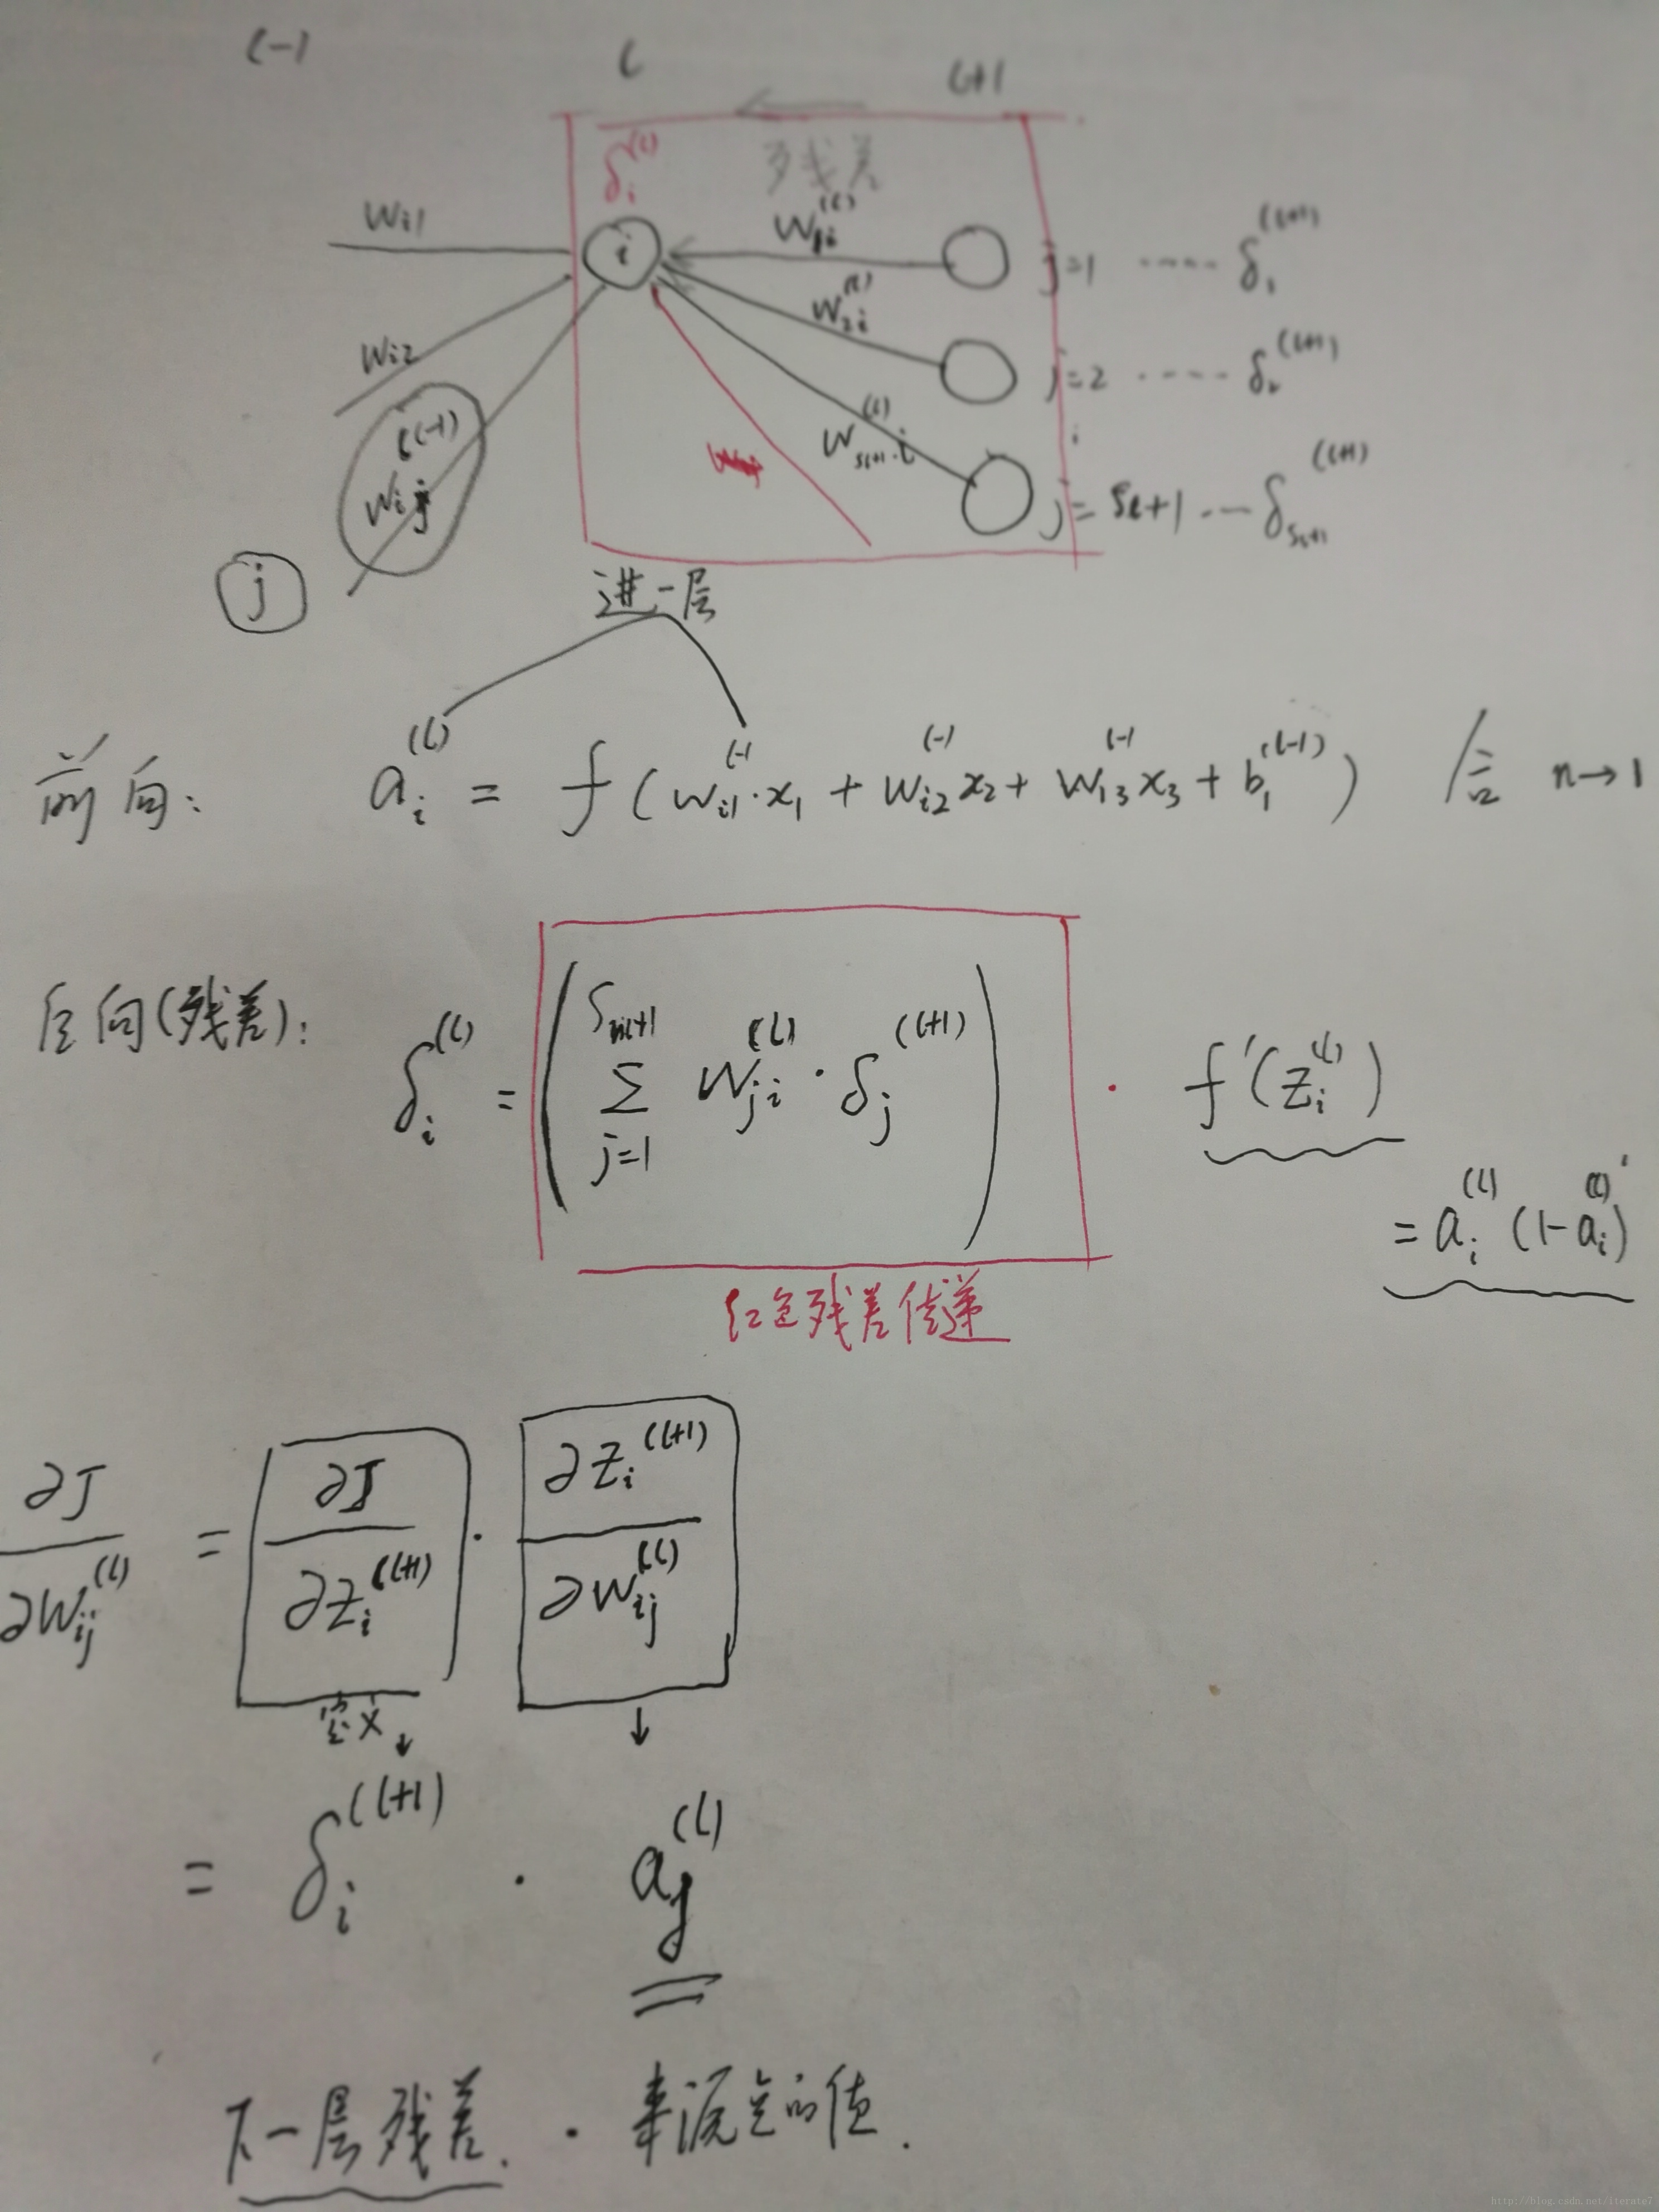 l-1 l l+1
δᵢ⁽ˡ⁾ 残差
Wi1 i W1i⁽ˡ⁾ j=1 ····· δ₁⁽ˡ⁺¹⁾
Wi2 W2i⁽ˡ⁾ j=2 ····· δ₂⁽ˡ⁺¹⁾
Wij⁽ˡ⁻¹⁾ W_{Sl+1·i}⁽ˡ⁾ j=Sl+1 ···· δ_{Sl+1}⁽ˡ⁺¹⁾
j
进一层
前向: aᵢ⁽ˡ⁾ = f(Wi1ˡ⁻¹·x₁ + Wi2ˡ⁻¹x₂ + Wi3ˡ⁻¹x₃ + b₁⁽ˡ⁻¹⁾) n→1
后向(残差): δᵢ⁽ˡ⁾ = (∑_{j=1}^{Sl+1} Wji⁽ˡ⁾·δj⁽ˡ⁺¹⁾) · f'(zᵢ⁽ˡ⁾)
= aᵢ⁽ˡ⁾(1-aᵢ⁽ˡ⁾)
红色残差传递
∂J/∂Wij⁽ˡ⁾ = ∂J/∂zᵢ⁽ˡ⁺¹⁾ · ∂zᵢ⁽ˡ⁺¹⁾/∂Wij⁽ˡ⁾
定义↓ ↓
= δᵢ⁽ˡ⁺¹⁾ · aj⁽ˡ⁾
下一层残差. · 来源点的值.
http://blog.csdn.net/iterate7